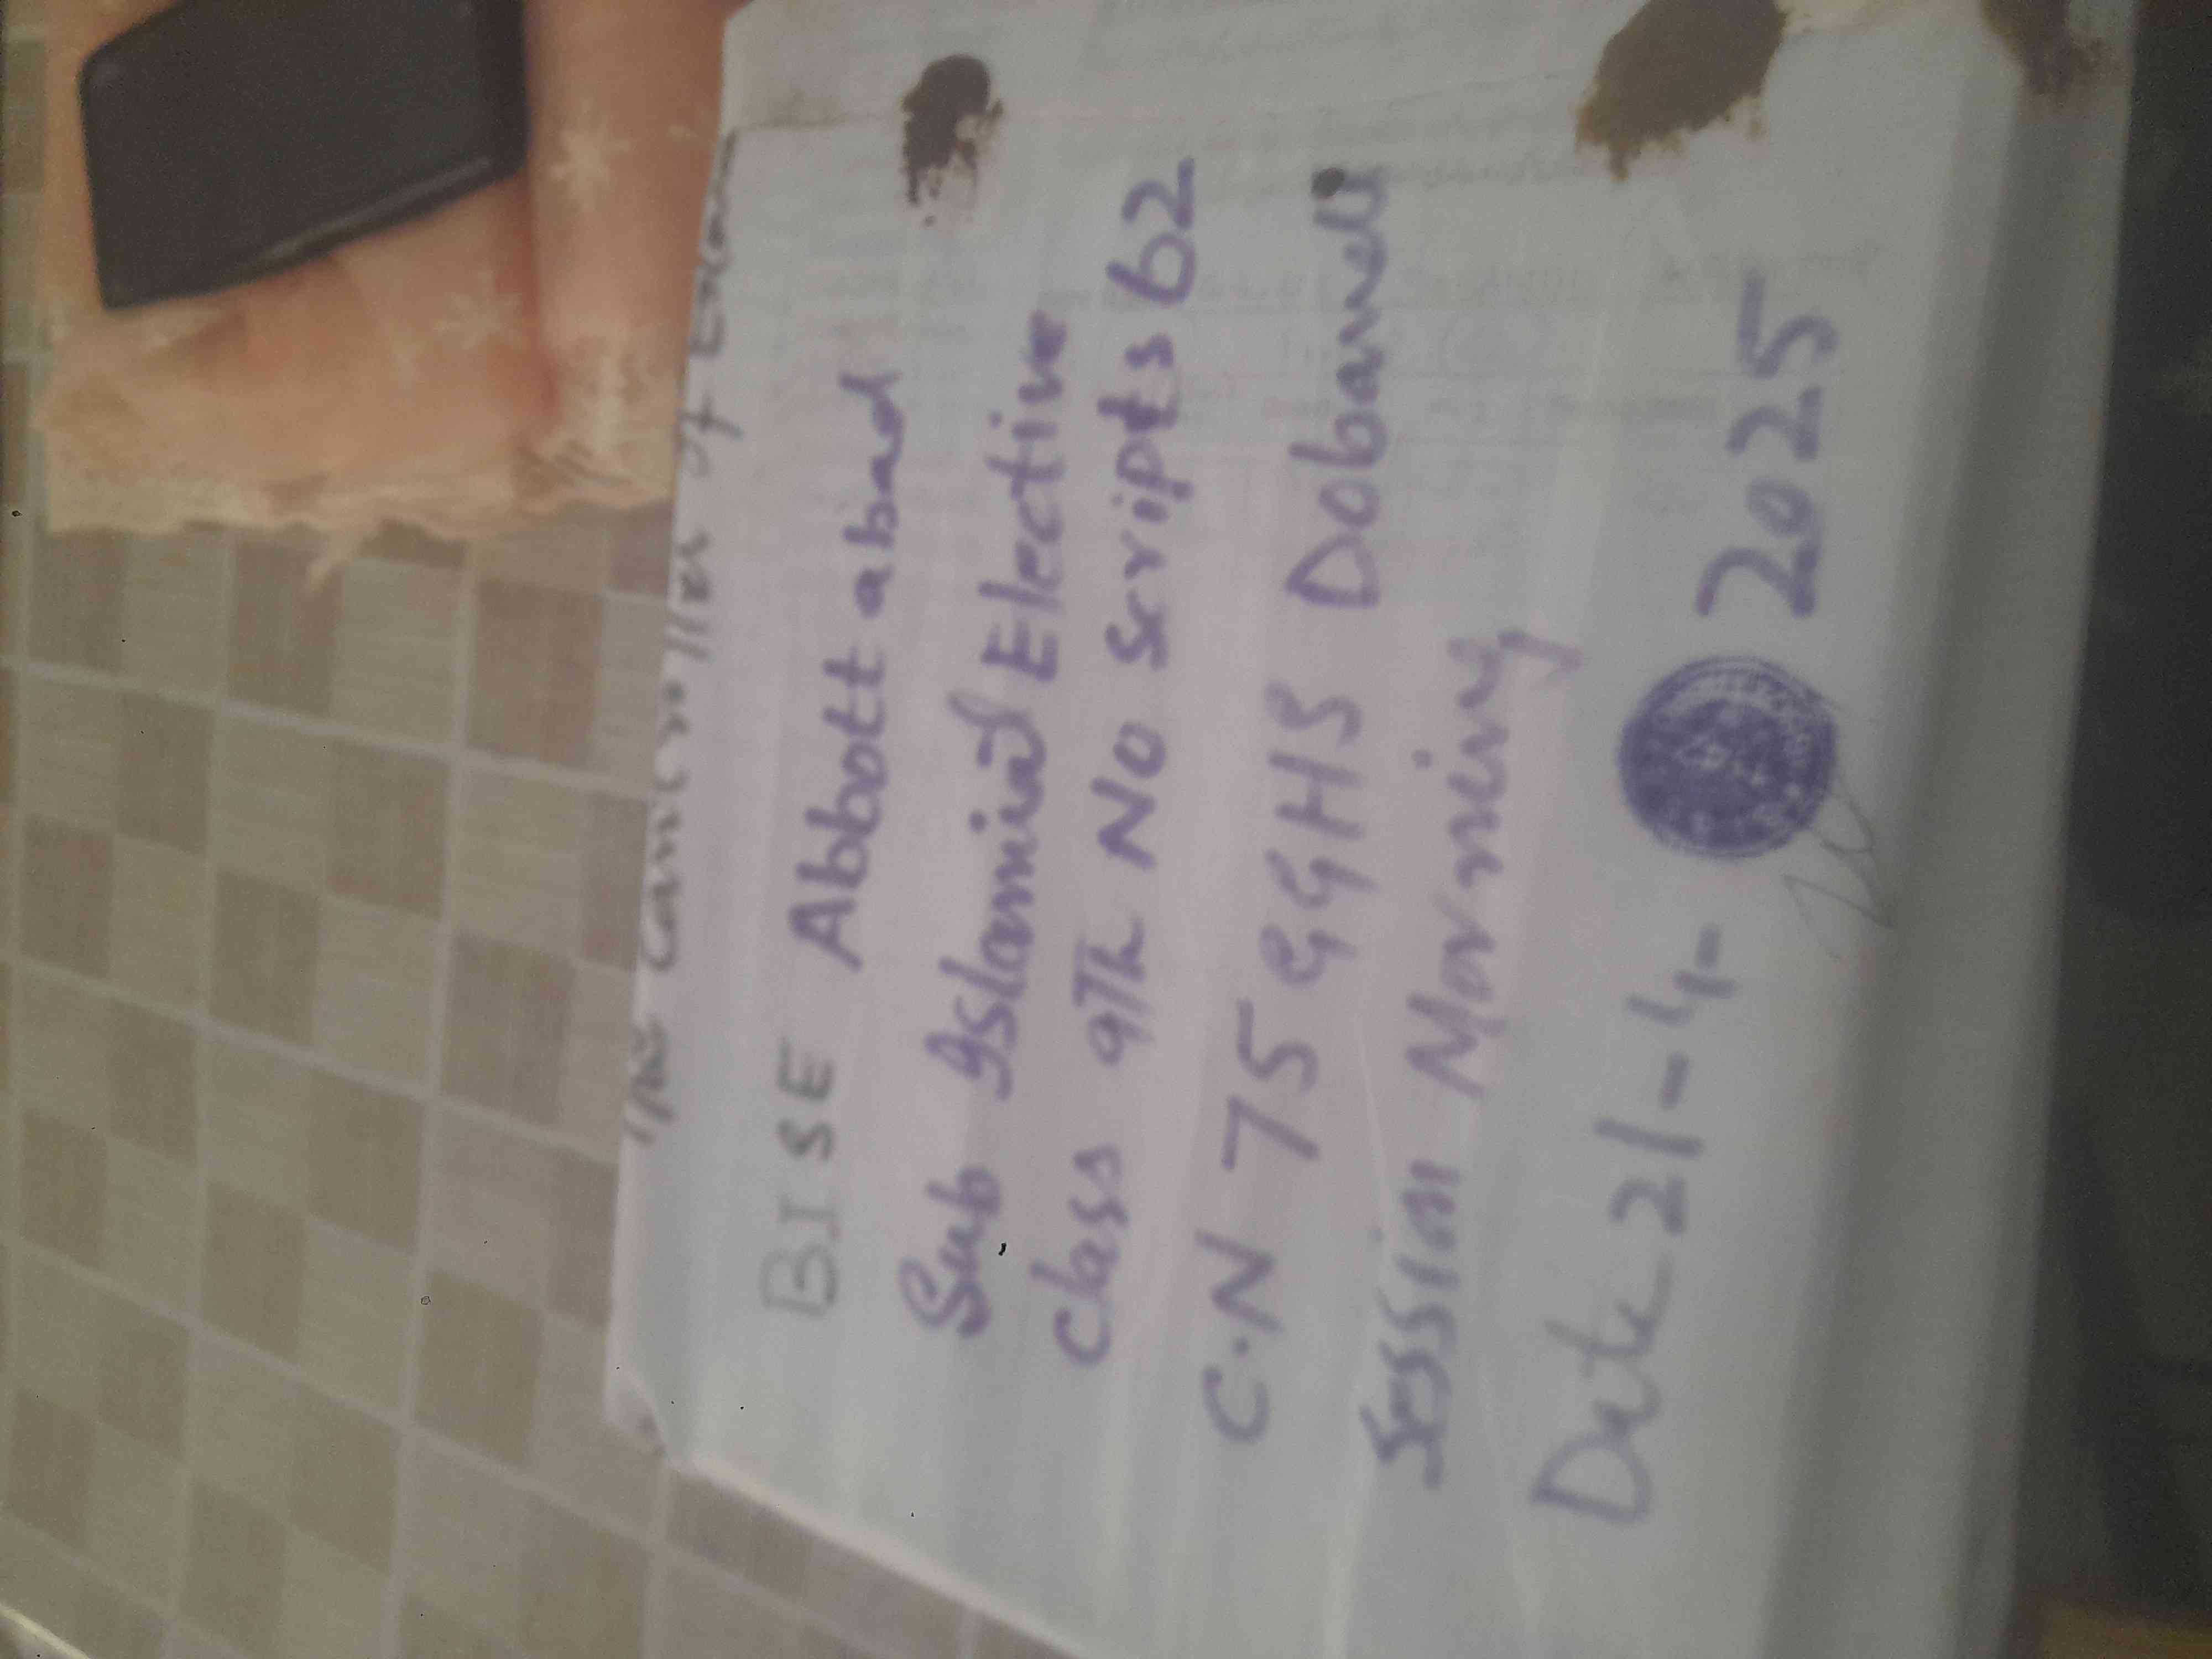 The Controller of Exam
BISE Abbottabad
Sub Islamiat Elective
Class 9Th No Scripts 62
C.N 75 GGHS Dobandi
Session Morning
Date 21-4-2025